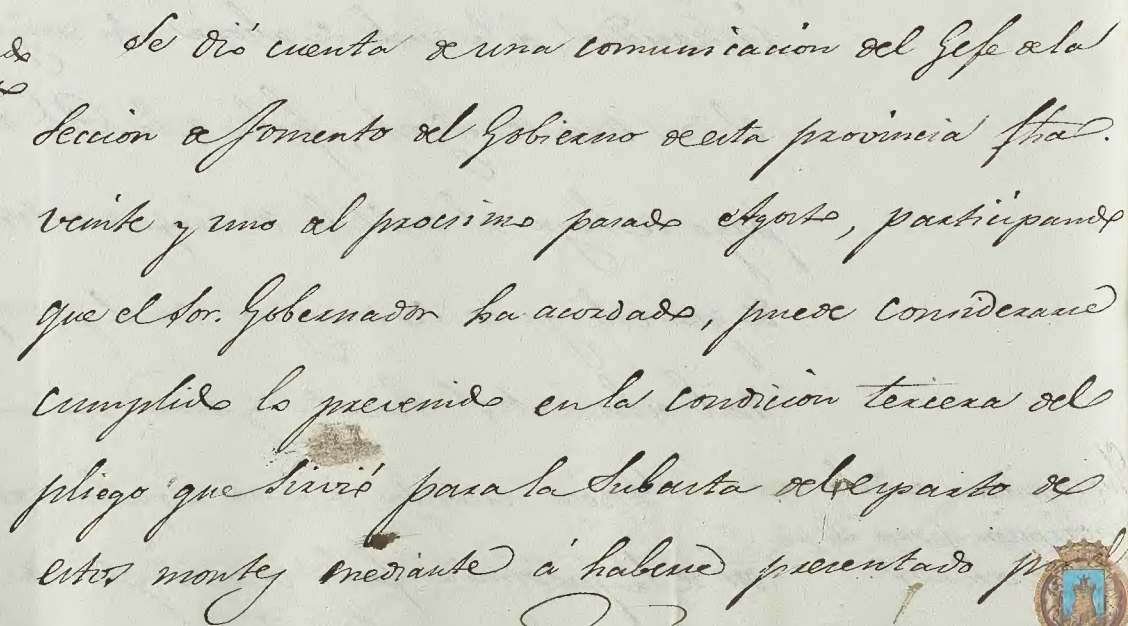 Se dió cuenta de una comunicacion del Gefe de la
Seccion de Fomento del Gobierno de esta provincia fha.
veinte y uno del procsimo pasado Agosto, participando
que el Sor. Gobernador ha acordado, puede considerarse
cumplido lo prevenido en la condicion tercera del
pliego que sirvió para la Subasta del esparto de
estos montes mediante á haberse presentado por